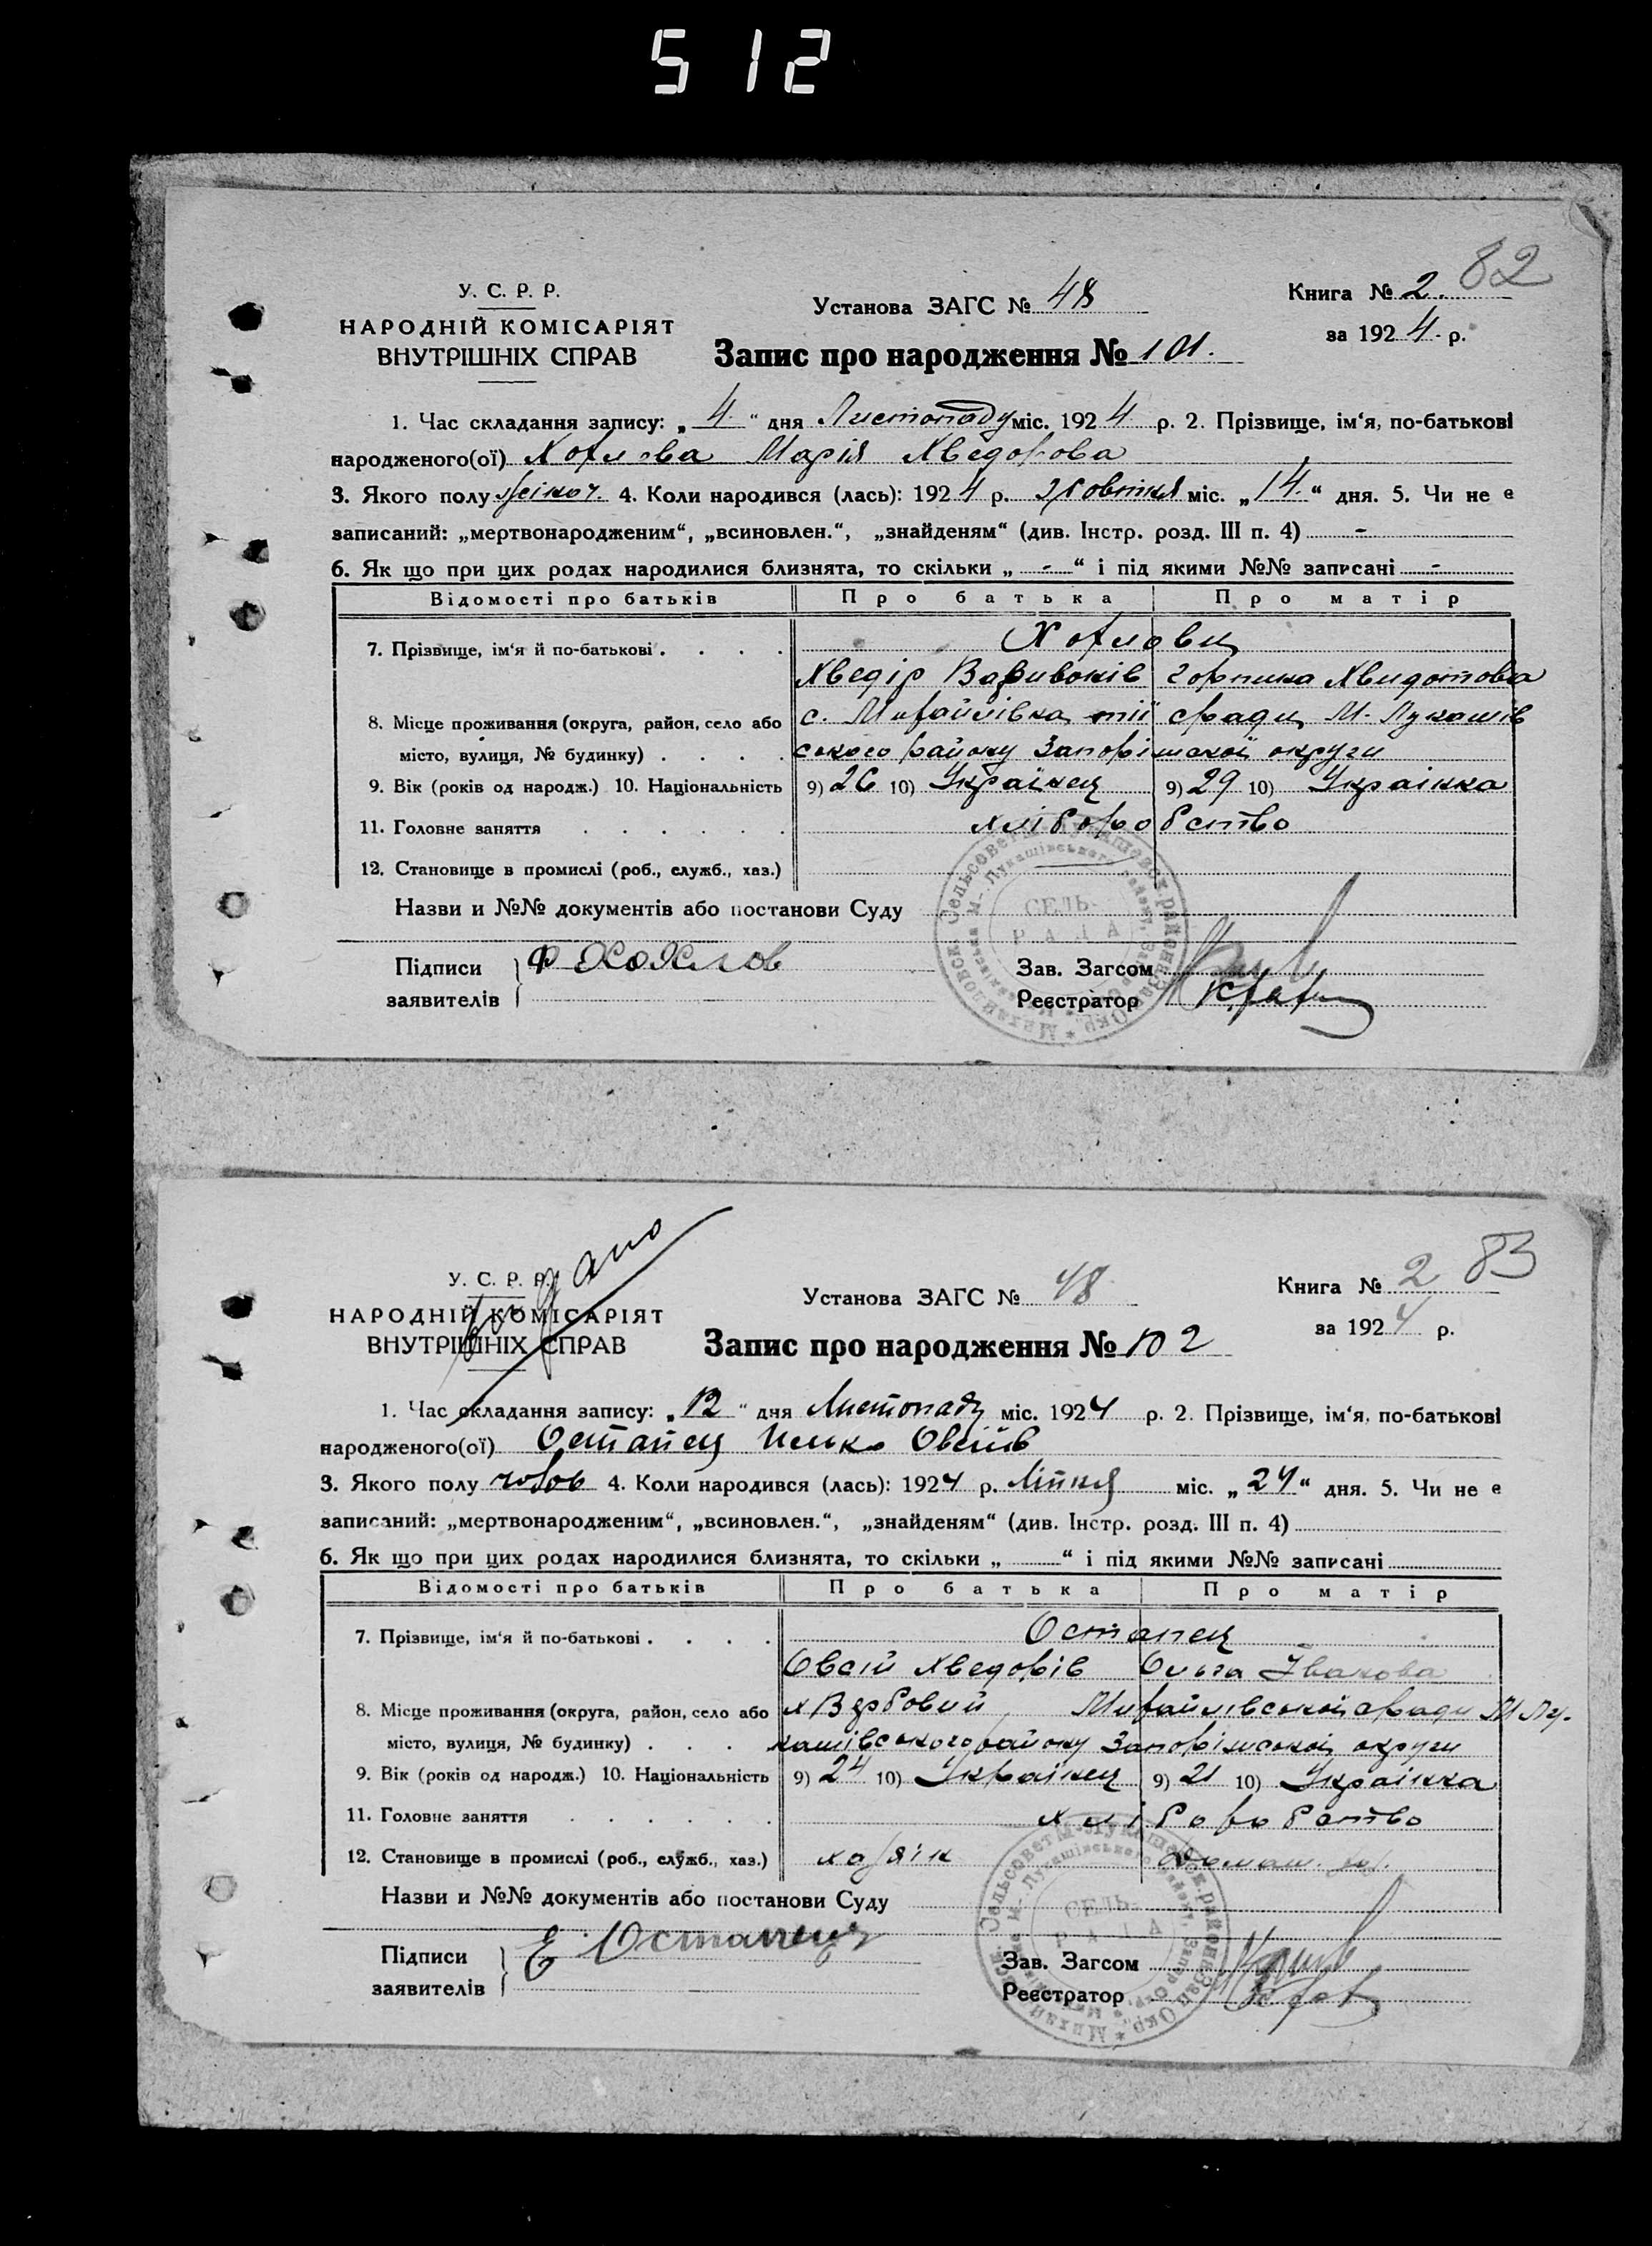 512
82
У. С. Р. Р.
НАРОДНІЙ КОМІСАРІЯТ
ВНУТРІШНІХ СПРАВ
Установа ЗАГС № 48
Книга № 2.
за 1924 р.
Запис про народження № 101.
1. Час складання запису: „4“ дня Листопаду міс. 1924 р. 2. Прізвище, ім‘я, по-батькові
народженого(ої) Хохлова Марія Хведорова
3. Якого полу жіноч. 4. Коли народився (лась): 1924 р. Жовтня міс. „14.“ дня. 5. Чи не є
записаний: „мертвонародженим“, „всиновлен.“, „знайденям“ (див. Інстр. розд. III п. 4) -
6. Як що при цих родах народилися близнята, то скільки „ - “ і під якими №№ записані -
Відомості про батьків Про батька Про матір
7. Прізвище, ім‘я й по-батькові . . . . Хохлови
Хведір
8. Місце проживання (округа, район, село або с. Михайлівка тії ж ради М. Лукашів
місто, вулиця, № будинку) . . . . ського району Запоріжської округи
9. Вік (років од народж.) 10. Національність 9) 26 10) Українец 9) 29 10) Українка
11. Головне заняття . . . . . . хліборобство
12. Становище в промислі (роб., служб., хаз.)
Назви и №№ документів або постанови Суду
Підписи
заявителів
Ф Хохлов
Зав. Загсом
Реєстратор
СЕЛЬ-
РАДА
83
Видано
У. С. Р. Р.
НАРОДНІЙ КОМІСАРІЯТ
ВНУТРІШНІХ СПРАВ
Установа ЗАГС № 48
Книга № 2
за 1924 р.
Запис про народження № 102
1. Час складання запису: „12“ дня Листопаду міс. 1924 р. 2. Прізвище, ім‘я, по-батькові
народженого(ої) Остапец Овсіїв
3. Якого полу чолов 4. Коли народився (лась): 1924 р. Липня міс. „24“ дня. 5. Чи не є
записаний: „мертвонародженим“, „всиновлен.“, „знайденям“ (див. Інстр. розд. III п. 4)
6. Як що при цих родах народилися близнята, то скільки „ “ і під якими №№ записані
Відомості про батьків Про батька Про матір
7. Прізвище, ім‘я й по-батькові . . . . Остапец
Овсій Хведорів Ольга Іванова
8. Місце проживання (округа, район, село або х Вербовий Михайлівської с/ради М Лу-
місто, вулиця, № будинку) . . . кашівського району Запоріжської округи
9. Вік (років од народж.) 10. Національність 9) 24 10) Українец 9) 21 10) Українка
11. Головне заняття . . . . . . хліборобство
12. Становище в промислі (роб., служб., хаз.) хазяїн Домаш. хоз.
Назви и №№ документів або постанови Суду
Підписи
заявителів
Е Остапец
Зав. Загсом
Реєстратор
СЕЛЬ-
РАДА